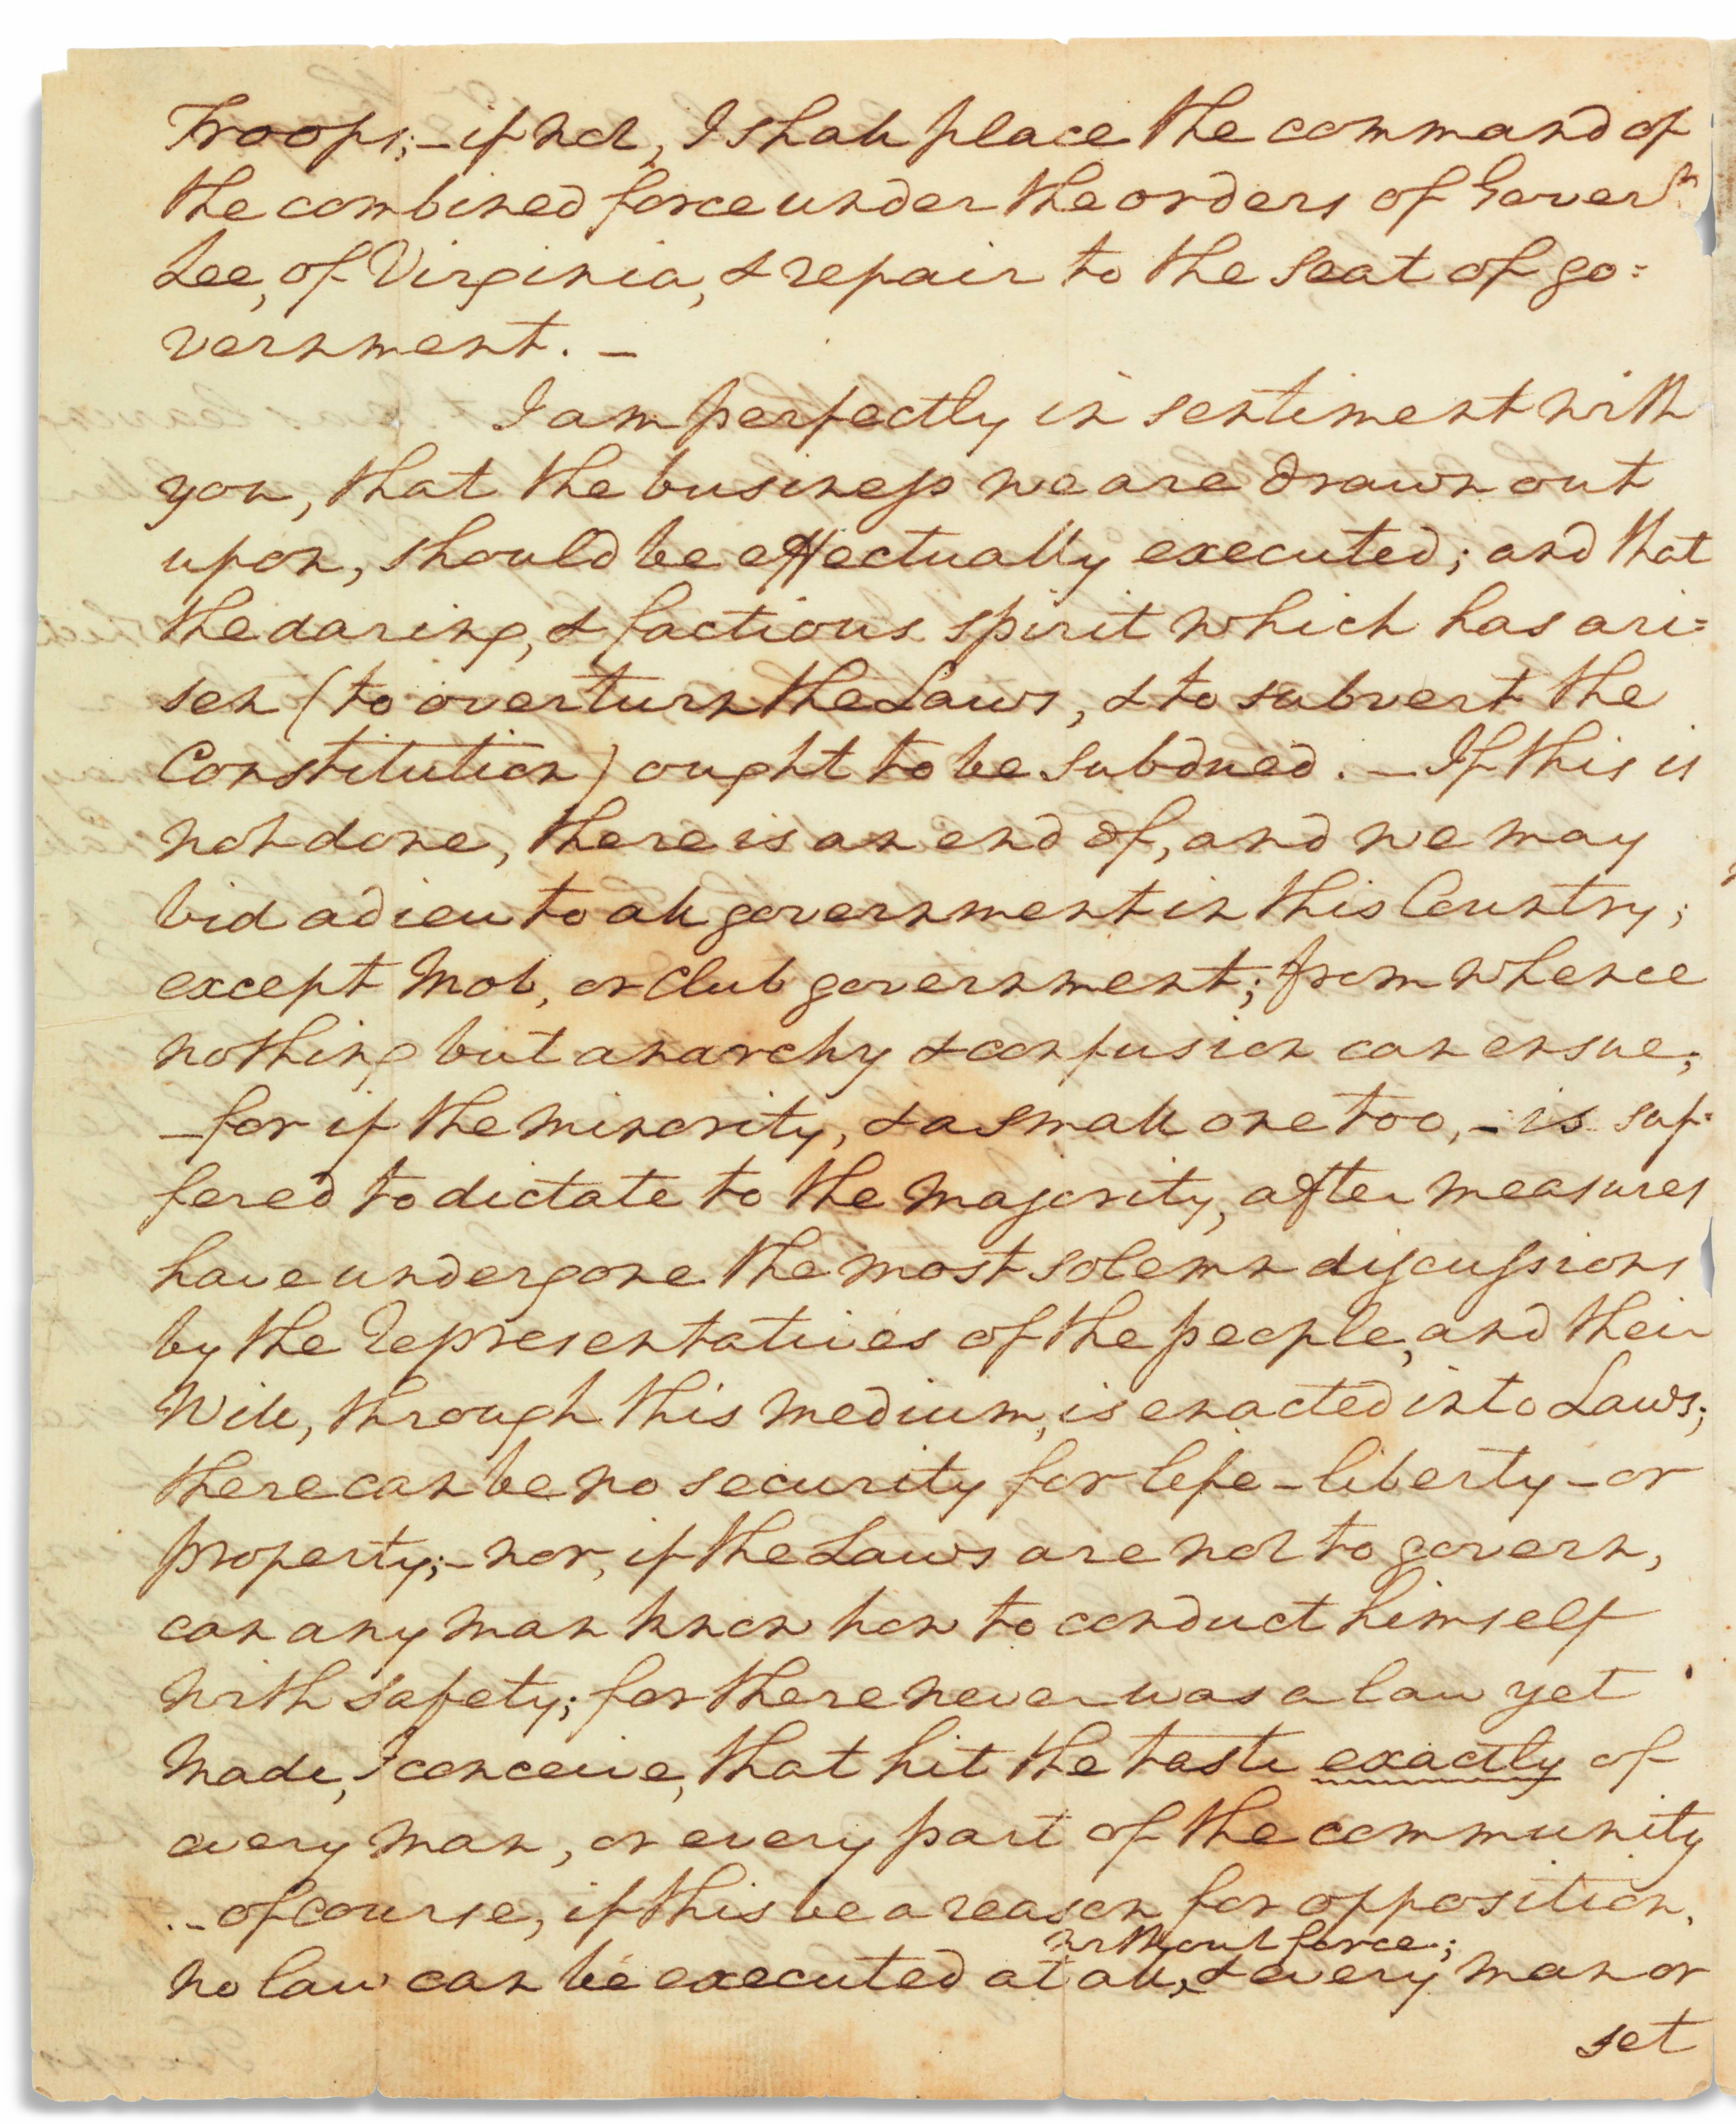 Troops;—if not, I shall place the command of
the combined force under the orders of Governr.
Lee, of Virginia, & repair to the Seat of go=
vernment.—
I am perfectly in sentiment with
you, that the business we are drawn out
upon, should be effectually executed; and that
the daring, & factious spirit which has ari=
sen (to overturn the Laws, & to subvert the
Constitution) ought to be subdued.—If this is
not done, there is an end of, and we may
bid adieu to all government in this Country;
except Mob, or Club government; from whence
nothing but anarchy & confusion can ensue;
—for if the minority, & a small one too,—is suf=
fered to dictate to the majority, after measures
have undergone the most solemn discussions
by the Representatives of the people, and their
Will, through this medium, is enacted into Laws;
there can be no security for life—liberty—or
property;—nor, if the Laws are not to govern,
can any man know how to conduct himself
with safety; for there never was a law yet
made, I conceive, that hit the taste exactly of
every man, or every part of the community
—of course, if this be a reason for opposition,
without force;
no law can be executed at all, & every man or
set